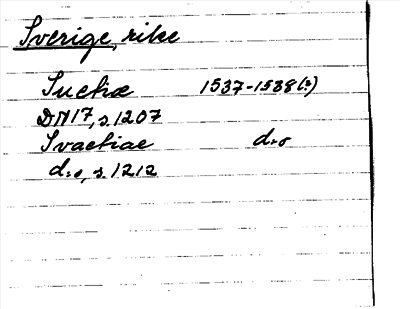 Sverige, rike
Suehæ 1537-1538(?)
DN17, s. 1207
Svaehiae d:o
d:o, s. 1212